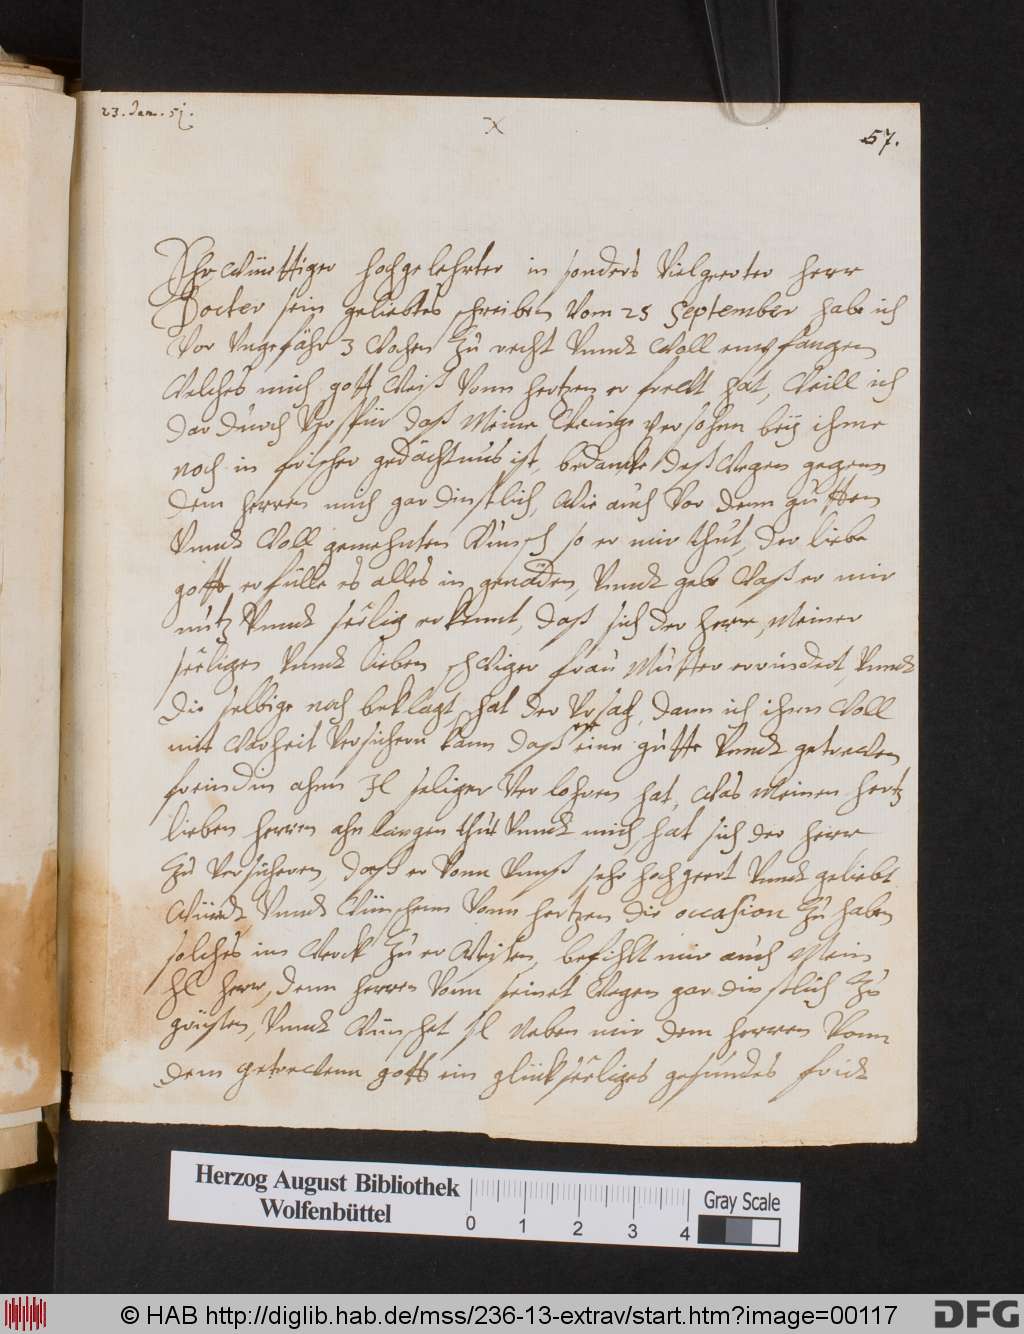 23. Jan. 51.
57.
Ehrwürttiger hochgelehrter in sonders Vielgeerter herr
Docter sein geliebtes schreiben Vom 25 September habe ich
Vor Vngefähr 3 Wochen Zu recht Vnndt Woll empfangen
Welches mich gott Weiß Vonn hertzen er freut hat, Weill ich
dar durch Verspür daß Meine Wenige Persohn beÿ ihme
noch in frischer gedächtnus ist, bedancke deßWegen gegen
dem herren mich gar dinstlich, Wie auch Vor denn gutten
Vnndt Woll gemeinten Wunsch so er mir thut, der liebe
gott erfülle es alles in genaden, Vnndt gebe Waß er mir
nutz Vnndt seelig erkennt, daß sich der herr Meiner
seeligen Vnndt lieben schWiger frau Mutter errindert, Vnndt
die selbige noch beklagt, hat der Vrsach, dann ich ihnn Woll
mitt Warheit Versichern kann daß er eine gutte Vnndt getreue
freindin ahnn Ihr seliger Verlohren hat, Was Meinen hertz
lieben herren ahn langen thut Vnndt mich, hat sich der herr
Zu Versicheren, daß er Vonn Vnnß sehr hochgeert Vnndt geliebt
Würdt Vnndt Wünschenn Vonn hertzen die occasion Zu haben
solches im Werck Zu er Weisen, befihlt mir auch Mein
herr, denn herren Vonn seinet Wegen gar dinstlich Zu
grüssen, Vnndt Wünschet Neben mir dem herren Vonn
dem getreuenn gott ein glückseeliges gesundes fridt
Herzog August Bibliothek
Wolfenbüttel
0 1 2 3 4
Gray Scale
© HAB http://diglib.hab.de/mss/236-13-extrav/start.htm?image=00117
DFG